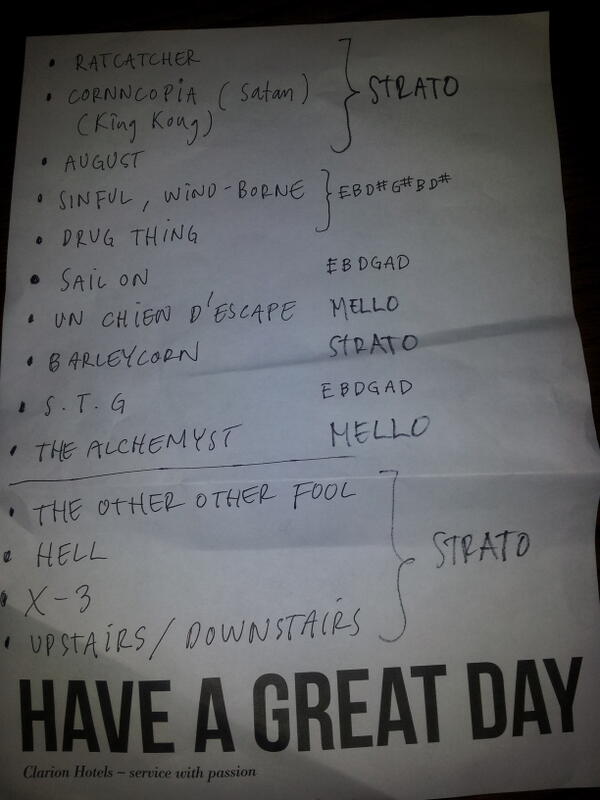 • RATCATCHER
• CORNNCOPIA (Satan) } STRATO
(King Kong)
• AUGUST
• SINFUL, WIND-BORNE } EBD#G#BD#
• DRUG THING
• SAIL ON EBDGAD
• UN CHIEN D'ESCAPE MELLO
• BARLEYCORN STRATO
• S.T.G EBDGAD
• THE ALCHEMYST MELLO
• THE OTHER OTHER FOOL
• HELL } STRATO
• X-3
• UPSTAIRS/DOWNSTAIRS
HAVE A GREAT DAY
Clarion Hotels – service with passion